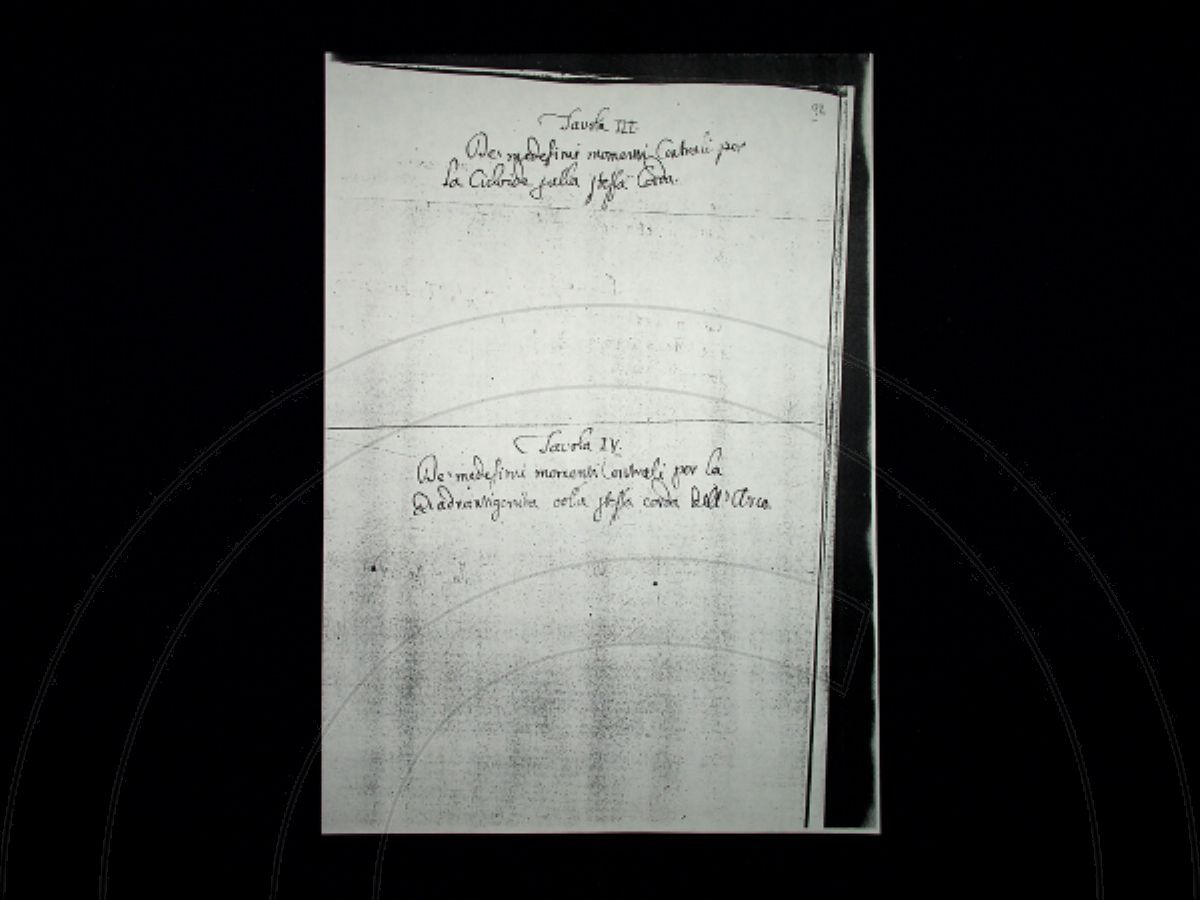 92
Tavola III.
De' medesimi momenti Centrali per
la Cicloide sulla stessa Corda.
Tavola IV.
De' medesimi momenti Centrali per la
colla stessa corda dell'Arco.